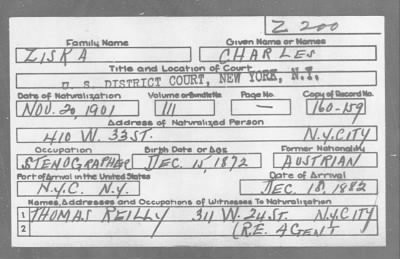 Z 200
Family Name Given Name or Names
ZISKA CHARLES
Title and Location of Court
U. S. DISTRICT COURT, NEW YORK, N.Y.
Date of Naturalization Volume or Bundle No. Page No. Copy of Record No.
NOV. 20, 1901 111 — 160-159
Address of Naturalized Person
410 W. 33 ST. N.Y.CITY
Occupation Birth Date or Age Former Nationality
STENOGRAPHER DEC. 15, 1872 AUSTRIAN
Port of Arrival in the United States Date of Arrival
N.Y.C. N.Y. DEC. 18, 1882
Names, Addresses and Occupations of Witnesses To Naturalization
1 THOMAS REILLY 311 W. 24 ST. N.Y.CITY
2 (R.E. AGENT